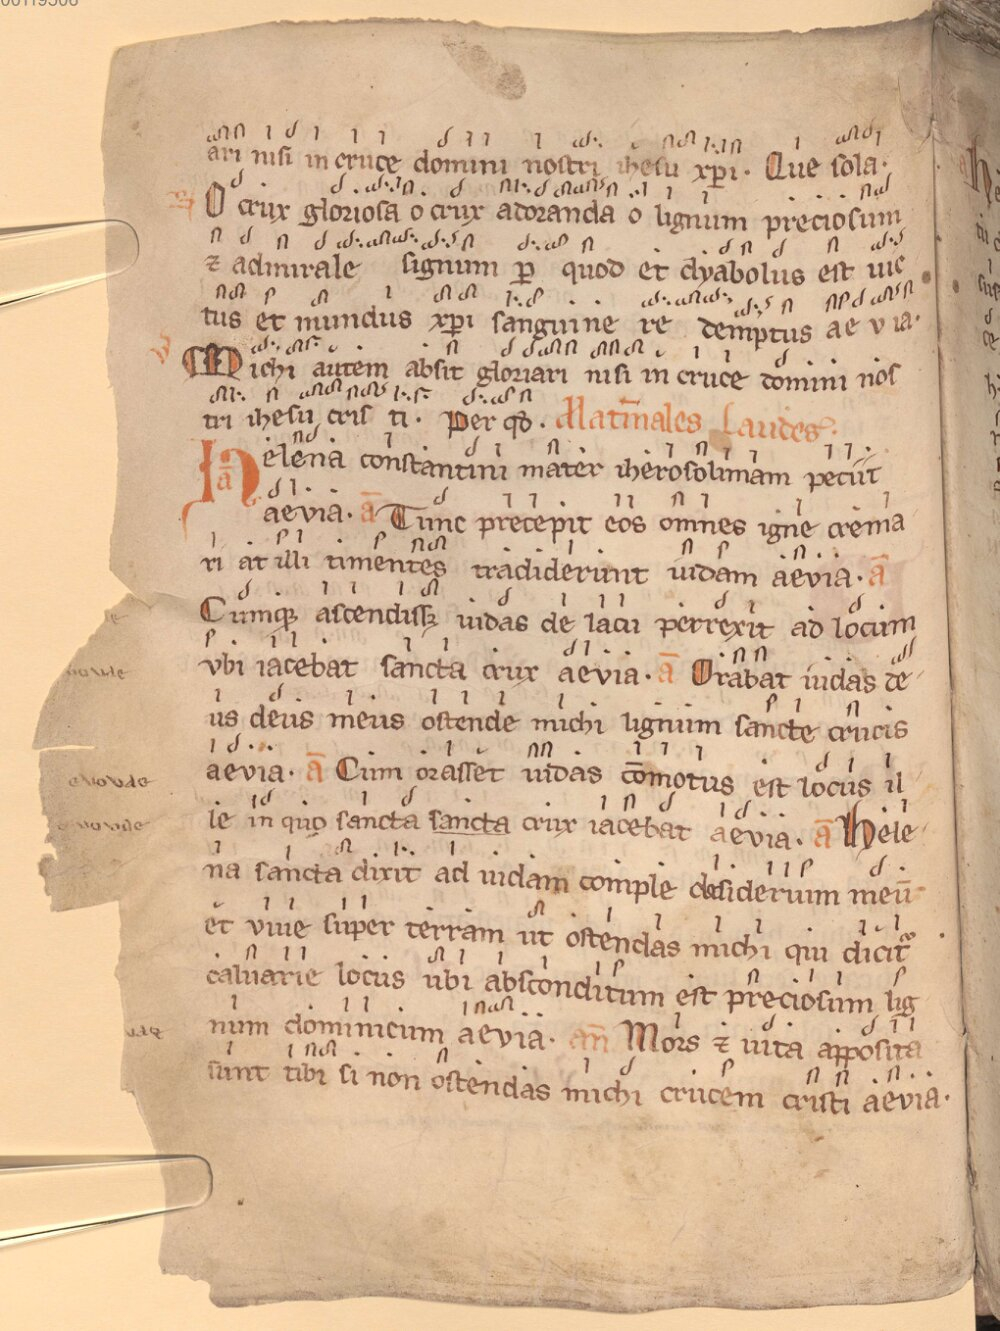 ari nisi in cruce domini nostri ihesu xp̄i. Cue sola.
O crux gloriosa o crux adoranda o lignum preciosum
⁊ admirale signum ꝑ quod et dyabolus est uic
tus et mundus xp̄i sanguine re demptus ae v ia.
Michi autem absit gloriari nisi in cruce domini nos
tri ihesu cris ti. Per qd̄. Matinales Laudes.
ā Helena constantini mater iherosolimam peciit
aevia. ā Tunc precepit eos omnes igne crema
ri at illi timentes tradiderunt iudam aevia. ā
Cumqꝫ ascendissꝫ iudas de lacu perrexit ad locum
vbi iacebat sancta crux aevia. ā Orabat iudas de
us deus meus ostende michi lignum sancte crucis
aevia. ā Cum orasset iudas cōmotus est locus il
le in quo sancta sancta crux iacebat aevia. ā Hele
na sancta dixit ad iudam comple desiderium meū
et viue super terram ut ostendas michi qui dicit᷑
caluarie locus ubi absconditum est preciosum lig
num dominicum aevia. an̄ Mors ⁊ uita apposita
sunt tibi si non ostendas michi crucem cristi aevia.